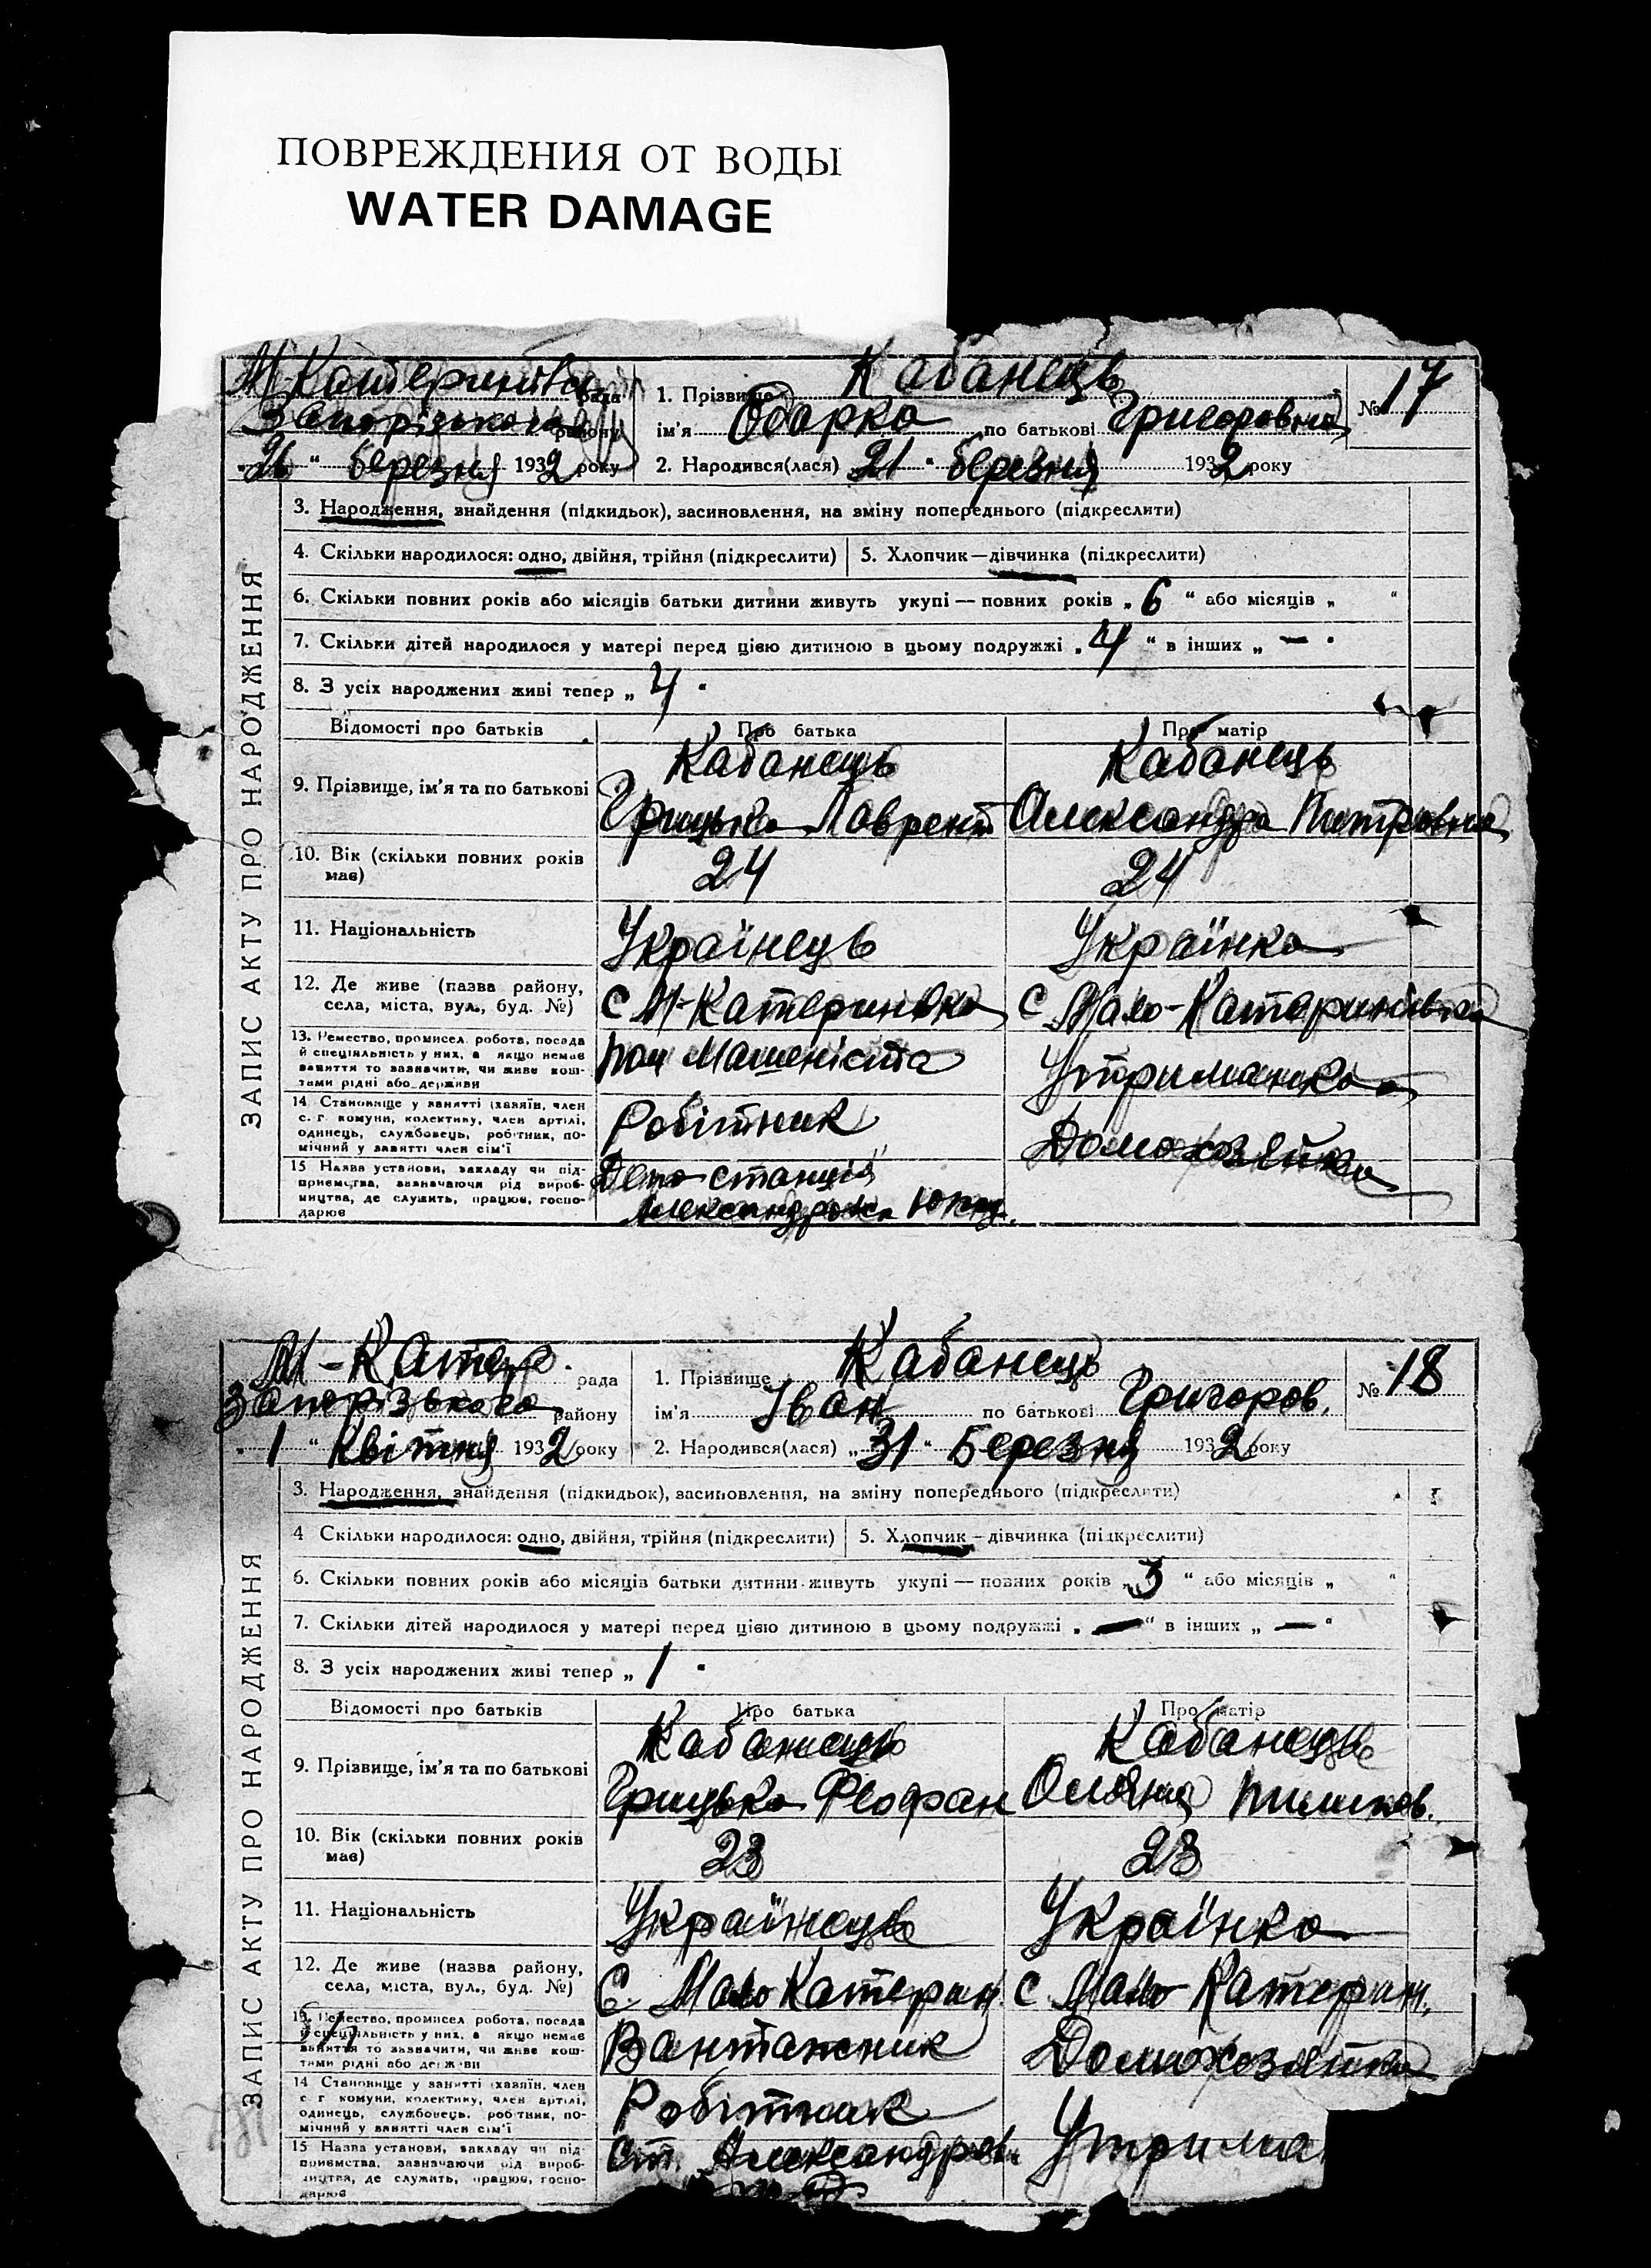 ПОВРЕЖДЕНИЯ ОТ ВОДЫ
WATER DAMAGE
М-Катеринівка рада
Запорізького району
„26“ березня 1932 року
1. Прізвище Кабанець
ім'я Одарка по батькові Григоровна
2. Народився(лася) 21 " березня 1932 року
№ 17
ЗАПИС АКТУ ПРО НАРОДЖЕННЯ
3. Народження, знайдення (підкидьок), засиновлення, на зміну попереднього (підкреслити)
4. Скільки народилося: одно, двійня, трійня (підкреслити)
5. Хлопчик—дівчинка (підкреслити)
6. Скільки повних років або місяців батьки дитини живуть укупі — повних років „ 6 “ або місяців „ “
7. Скільки дітей народилося у матері перед цією дитиною в цьому подружжі „ 4 “ в інших „ — "
8. З усіх народжених живі тепер „ 4 "
Відомості про батьків
Про батька
Про матір
9. Прізвище, ім'я та по батькові
Кабанець
Грицько Лаврент
Кабанець
Александра Питровна
10. Вік (скільки повних років
має)
24
24
11. Національність
Українець
Українка
12. Де живе (назва району,
села, міста, вул., буд. №)
с М-Катеринівка
с Мало-Катеринівка
13. Ремество, промисел робота, посада
й спеціяльність у них, а якщо немає
заняття то зазначити, чи живе кош-
тами рідні або держави
пом Машеніста
Утриманка
14 Становище у занятті (хазяїн, член
с.-г. комуни, колективу, член артілі,
одинець, службовець, робітник, по-
мічний у занятті член сім'ї
Робітник
Домохозяйка
15 Назва установи, закладу чи під-
приємства, зазначаючи рід вироб-
ництва, де служить, працює, госпо-
дарює
Депо станція
М-Катер. рада
Запорізького району
„ 1 “ Квітня 1932 року
1. Прізвище Кабанець
ім'я Іван по батькові Григоров.
2. Народився(лася) „ 31 " Березня 1932 року
№ 18
ЗАПИС АКТУ ПРО НАРОДЖЕННЯ
3. Народження, знайдення (підкидьок), засиновлення, на зміну попереднього (підкреслити)
4 Скільки народилося: одно, двійня, трійня (підкреслити)
5. Хлопчик—дівчинка (підкреслити)
6. Скільки повних років або місяців батьки дитини живуть укупі — повних років „ 3 “ або місяців „ “
7. Скільки дітей народилося у матері перед цією дитиною в цьому подружжі „ — “ в інших „ — "
8. З усіх народжених живі тепер „ 1 "
Відомості про батьків
Про батька
Про матір
9. Прізвище, ім'я та по батькові
Кабанець
Грицько Феофан
Кабанець
Оляна Пилипов.
10. Вік (скільки повних років
має)
23
23
11. Національність
Українець
Українка
12. Де живе (назва району,
села, міста, вул., буд. №)
С. Мало Катерин.
с. Мало Катерин.
13. Ремество, промисел робота, посада
й спеціяльність у них, а якщо немає
заняття то зазначити, чи живе кош-
тами рідні або держави
Вантажник
Домохозяйка
14 Становище у занятті (хазяїн, член
с.-г. комуни, колективу, член артілі,
одинець, службовець, робітник, по-
мічний у занятті член сім'ї
Робітник
Утрима
15 Назва установи, закладу чи під-
приємства, зазначаючи рід вироб-
ництва, де служить, працює, госпо-
дарює
ст. Александров